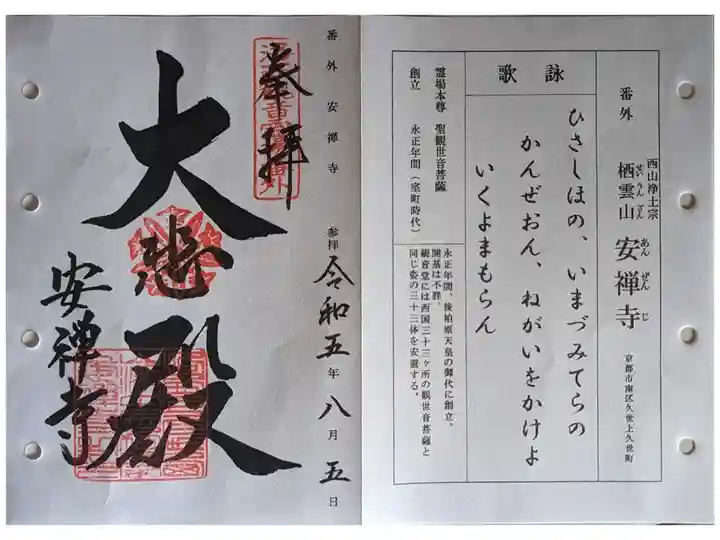 番外
西山浄土宗
栖雲山 安禅寺
せいうんざん あんぜんじ
京都市南区久世上久世町
詠歌
ひさしほの、いまづみてらの
かんぜおん、ねがいをかけよ
いくよまもらん
霊場本尊 聖観世音菩薩
創立 永正年間(室町時代)
永正年間、後柏原天皇の御代に創立。
開基は不詳。
観音堂には西国三十三ヶ所の観世音菩薩と
同じ姿の三十三体を安置する。
番外 安禅寺
参拝 令和五年八月五日
奉拝
大悲殿
安禅寺